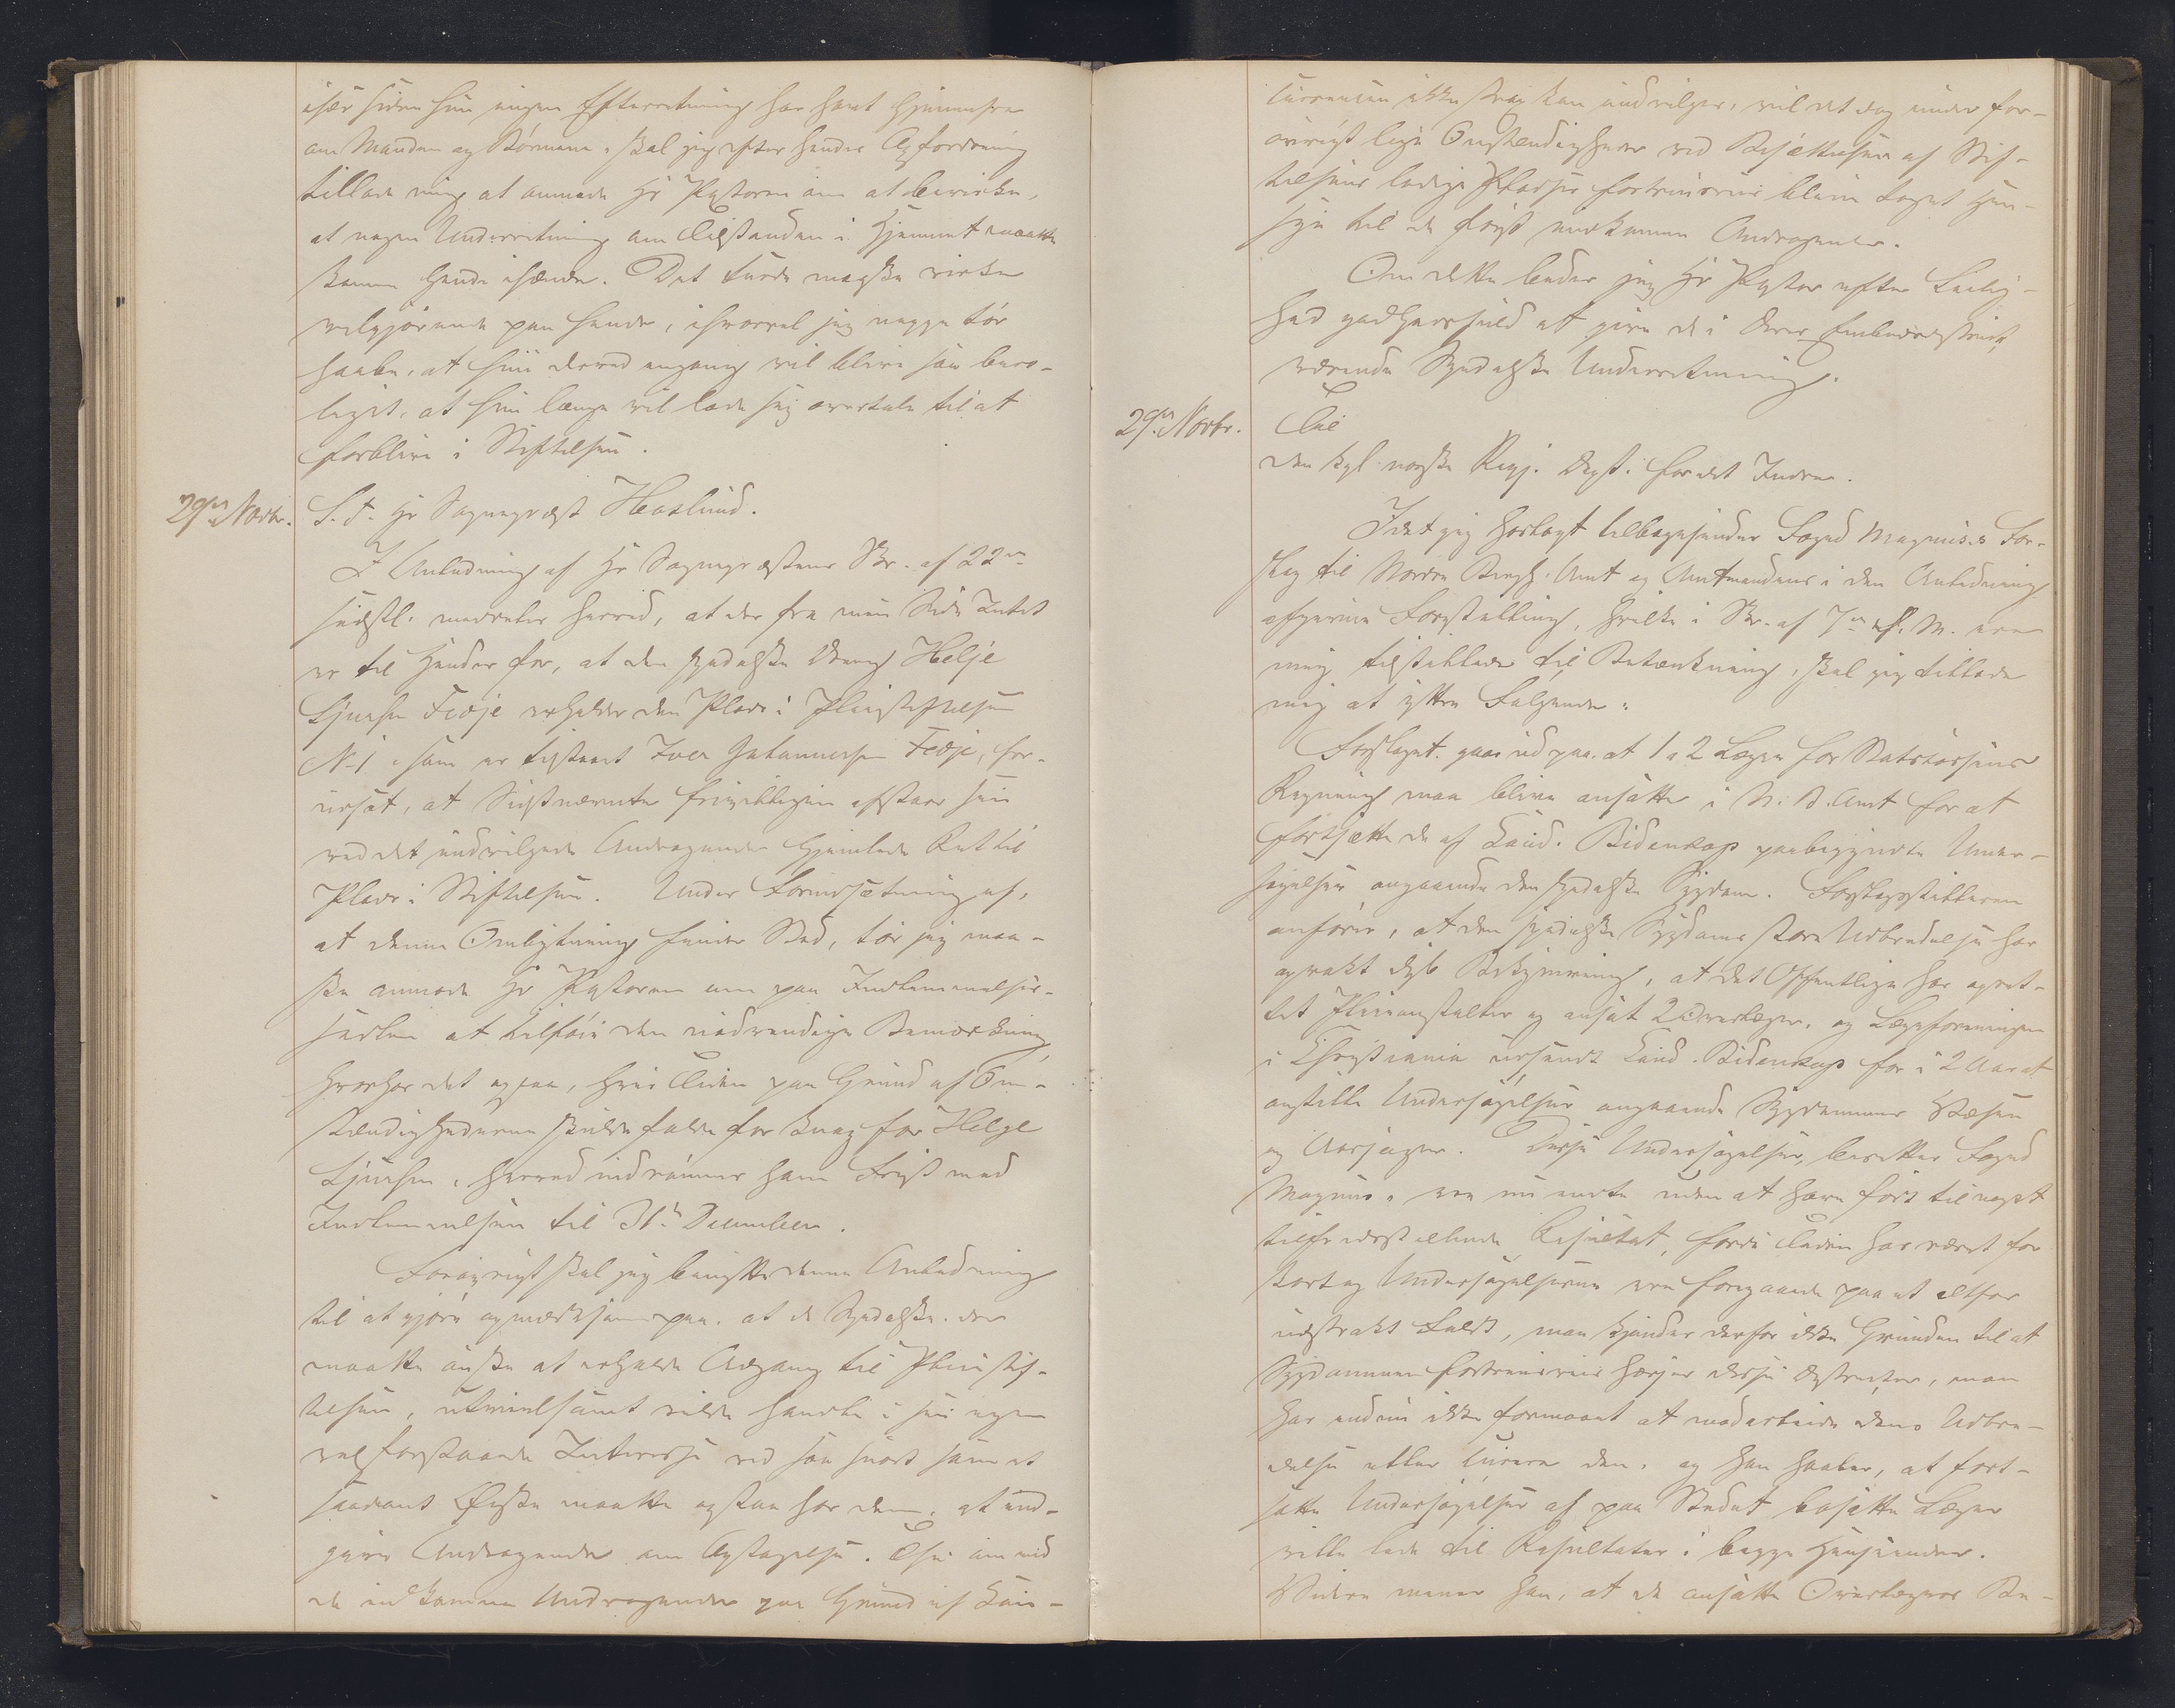 især siden hun ingen Efterretning har havt hjemmefra
om Manden og Börnene, skal jeg efter hendes Opfordring
tillade mig at anmode Hr Pastoren om at bevirke,
at nogen Underretning om Tilstanden i Hjemmet maatte
komme hende ihænde. Det turde maaske virke
velgjörende paa hende, ihvorvel jeg neppe tör
haabe, at hun derved engang vil blive saa bero-
liget, at hun længe vil lade sig overtale til at
forblive i Stiftelsen.
29de Novbr. S. T. Hr Sognepræst Haslund.
I Anledning af Hr Sognepræstens Skr. af 22de
sidstl. meddeles herved, at der fra min Side Intet
er til Hinder for, at den spedalske Dreng Helje
Sjursen Fedje erholder den Plads i Pleiestiftelsen
No 1, som er tilstaaet Iver Johannesen Fedje, for-
udsat, at Sidstnævnte frivilligen afstaar sin
ved det indvilgede Andragende hjemlede Ret til
Plads i Stiftelsen. Under Forudsætning af,
at denne Ombytning finder Sted, tör jeg maa-
ske anmode Hr Pastoren om paa Indlemmelses-
sedlen at tilföie den nödvendige Bemærkning
hvorhos det ogsaa, hvis Tiden paa Grund af Om-
stændighederne skulde falde for knap for Helge
Sjursen, herved indrömmes ham Frist med
Indlemmelsen til 31te December.
Forövrigt skal jeg benytte denne Anledning
til at gjöre opmærksom paa, at de Spedalske, der
maatte önske at erholde Adgang til Pleiestif-
telsen, utvivlsomt vilde handle i sin egen
velforstaaede Interesse ved saa snart som et
saadant Önske maatte opstaa hos dem, at ind-
give Andragende om Optagelse. Thi om end
de indkomne Andragender paa Grund af Kon-
curencen ikke strax kan indvilges, vil det dog under for-
övrigt lige Omstændigheder ved Besættelsen af Stif-
telsens ledige Pladse fortrinsvis blive taget Hen-
syn til de först indkomne Andragender.
Om dette beder jeg Hr Pastor efter Leilig-
hed godhedsfuld at give de i Deres Embedsdistrict
værende Spedalske Underretning.
29de Novbr. Til
den kgl. norske Regj. Dept. for det Indre.
Idet jeg hoslagt tilbagesender Foged Magnus's For-
slag til Nordre Bergh. Amt og Amtmandens i den Anledning
afgivne Forestilling, hvilke i Skr. af 7de d. M. ere
mig tilstillede til Betænkning, skal jeg tillade
mig at yttre Fölgende:
Forslaget gaar ud paa, at 1 a 2 Læger for Statskassens
Regning maa blive ansatte i N. B. Amt for at
fortsætte de af Cand. Bidenkap paabegyndte Under-
sögelser angaaende den spedalske Sygdom. Forslagsstilleren
anförer, at den spedalske Sygdoms store Udbredelse har
opvakt dyb Bekymring, at det Offentlige har opret-
tet Pleieanstalter og ansat 2 Overlæger, og Lægeforeningen
i Christiania udsendt Cand. Bidenkap for i 2 Aar at
anstille Undersögelser angaaende Sygdommens Væsen
og Aarsager. Disse Undersögelser, beretter Foged
Magnus, ere nu endte uden at have fört til noget
tilfredsstillende Resultat, fordi Tiden har været for
kort og Undersögelserne ere foregaaede paa et altfor
udstrakt Feldt, man kjender derfor ikke Grunden til at
Sygdommen fortrinsvis hærger disse Distrikter, man
har endnu ikke formaaet at modarbeide dens Udbre-
delse eller curere den, og han haaber, at fort-
satte Undersögelser af paa Stedet bosatte Læger
ville lede til Resultater i begge Henseender.
Videre mener han, at de ansatte Overlægers Be-